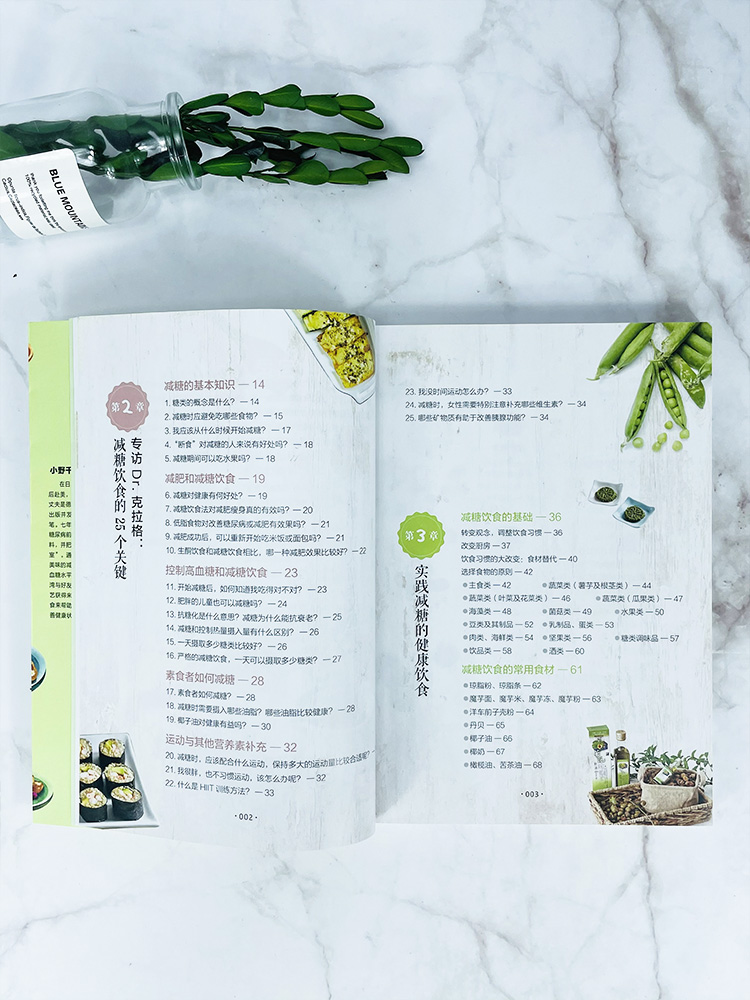 BLUE MOUNTA
小野千
在日
后赴美,
丈夫是德
出版并发
笔,七年
糖尿病前
料,并把
室”,通
美味的减
血糖水平
湾与好友
艺获得来
食来帮助
善健康状
第2章
专访 Dr. 克拉格:
减糖饮食的 25 个关键
减糖的基本知识 — 14
1. 糖类的概念是什么? — 14
2. 减糖时应避免吃哪些食物? — 15
3. 我应该从什么时候开始减糖? — 17
4. “断食”对减糖的人来说有好处吗? — 18
5. 减糖期间可以吃水果吗? — 18
减肥和减糖饮食 — 19
6. 减糖对健康有何好处? — 19
7. 减糖饮食法对减肥瘦身真的有效吗? — 20
8. 低脂食物对改善糖尿病或减肥有效果吗? — 21
9. 减肥成功后,可以重新开始吃米饭或面包吗? — 21
10. 生酮饮食和减糖饮食相比,哪一种减肥效果比较好? — 22
控制高血糖和减糖饮食 — 23
11. 开始减糖后,如何知道我吃得对不对? — 23
12. 肥胖的儿童也可以减糖吗? — 24
13. 抗糖化是什么意思?减糖为什么能抗衰老? — 25
14. 减糖和控制热量摄入量有什么区别? — 26
15. 一天摄取多少糖类比较好? — 26
16. 严格的减糖饮食,一天可以摄取多少糖类? — 27
素食者如何减糖 — 28
17. 素食者如何减糖? — 28
18. 减糖时需要摄入哪些油脂?哪些油脂比较健康? — 28
19. 椰子油对健康有益吗? — 30
运动与其他营养素补充 — 32
20. 减糖时,应该配合什么运动,保持多大的运动量比较合适呢?
21. 我很胖,也不习惯运动,该怎么办呢? — 32
22. 什么是 HIIT 训练方法? — 33
·002·
23. 我没时间运动怎么办? — 33
24. 减糖时,女性需要特别注意补充哪些维生素? — 34
25. 哪些矿物质有助于改善胰腺功能? — 34
第3章
实践减糖的健康饮食
减糖饮食的基础 — 36
转变观念,调整饮食习惯 — 36
改变厨房 — 37
饮食习惯的大改变:食材替代 — 40
选择食物的原则 — 42
●主食类 — 42 ●蔬菜类(薯芋及根茎类) — 44
●蔬菜类(叶菜及花菜类) — 46 ●蔬菜类(瓜果类) — 47
●海藻类 — 48 ●菌菇类 — 49 ●水果类 — 50
●豆类及其制品 — 52 ●乳制品、蛋类 — 53
●肉类、海鲜类 — 54 ●坚果类 — 56 ●糖类调味品 — 57
●饮品类 — 58 ●酒类 — 60
减糖饮食的常用食材 — 61
●琼脂粉、琼脂条 — 62
●魔芋面、魔芋米、魔芋冻、魔芋粉 — 63
●洋车前子壳粉 — 64
●丹贝 — 65
●椰子油 — 66
●椰奶 — 67
●橄榄油、苦茶油 — 68
·003·